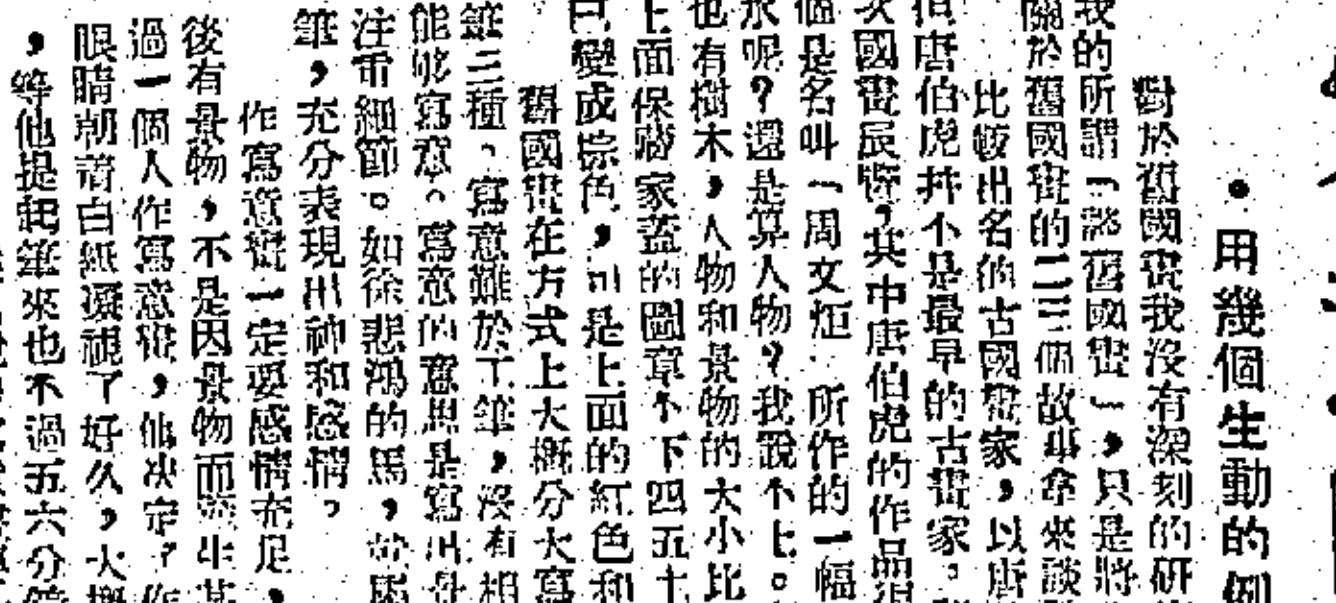 •用幾個生動的例
對於舊國畫我沒有深刻的研
我的所謂「談舊國畫」，只是將
關於舊國畫的二三個故事拿來談
比較出名的古國畫家，以唐
但唐伯虎并不是最早的古畫家。
次國畫展覽，其中唐伯虎的作品很
個是名叫「周文炬 所作的一幅
水呢？還是算人物？我說不上。
也有樹木，人物和景物的大小比
上面保藏家蓋的圖章不下四五十
已變成棕色，可是上面的紅色和
舊國畫在方式上大概分大寫
筆三種、寫意難於工筆，沒有相
能够寫意。寫意的意思是寫出
注重細節。如徐悲鴻的馬，
筆，充分表現出神和感情。
作寫意畫一定要感情充足，
後有景物，不是因景物而產生某
過一個人作寫意畫，他決定了作
眼睛朝着白紙凝視了好久，大概
，等他提起筆來也不過五六分鐘